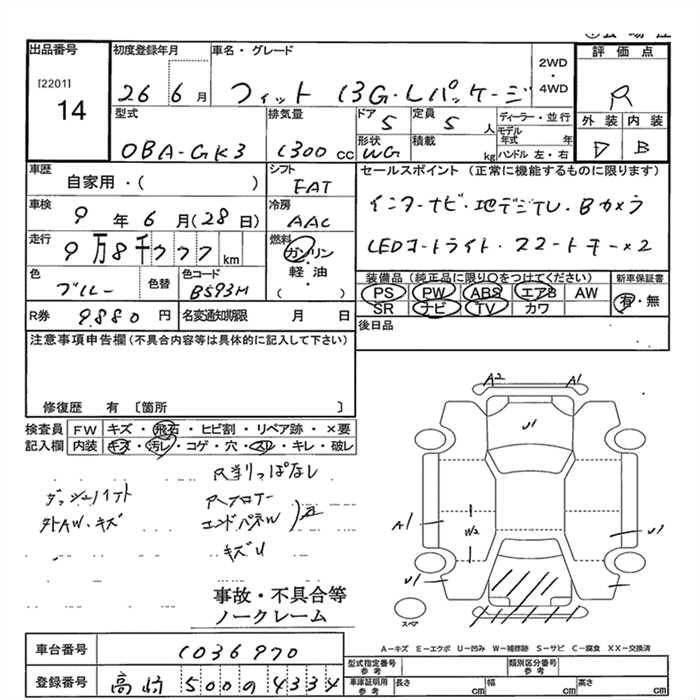 出品番号
[2201]
14
初度登録年月
26 6 月
車名・グレード
フィット 13G・Lパッケージ
2WD
・
4WD
評価点
R
外装 内装
D B
型式
DBA-GK3
排気量
1300 CC
ドア
5
定員
5 人
形状
WG
積載
kg
ディーラー・並行
モデル
年式 年
ハンドル 左・右
車歴
自家用・( )
シフト
FAT
セールスポイント (正常に機能するものに限ります)
インターナビ・地デジTU・Bカメラ
LEDオートライト・スマートキー×2
車検
9 年 6 月 (28 日)
冷房
AAC
走行
9万8千777 km
燃料
ガソリン
軽油
( ・ )
色
ブルー
色替
色コード
B593M
装備品 (純正品に限り○をつけてください)
PS PW ABS エアB AW
SR ナビ TV カワ
新車保証書
有・無
R券 9880 円
名変通知期限 月 日
後日品
注意事項申告欄(不具合内容等は具体的に記入して下さい)
修復歴 有 〔箇所 〕
検査員 FW キズ・飛石・ヒビ割・リペア跡・×要
記入欄 内装 キズ・汚レ・コゲ・穴・スレ・キレ・破レ
R当りっぱなし
ダッシュハイフト
外AW・キズ
Rフロアー
エンドパネW
キズU
事故・不具合等
ノークレーム
A2 A1
U1
A1
W2
U1
U1
スペア
A-キズ E-エクボ U-凹み W-補修跡 S-サビ C-腐食 XX-交換済
車台番号 1036970
登録番号 高崎 500 の 4334
型式指定番号
参考
類別区分番号
参考
車庫証明用
参考
長さ cm
幅 cm
高さ cm